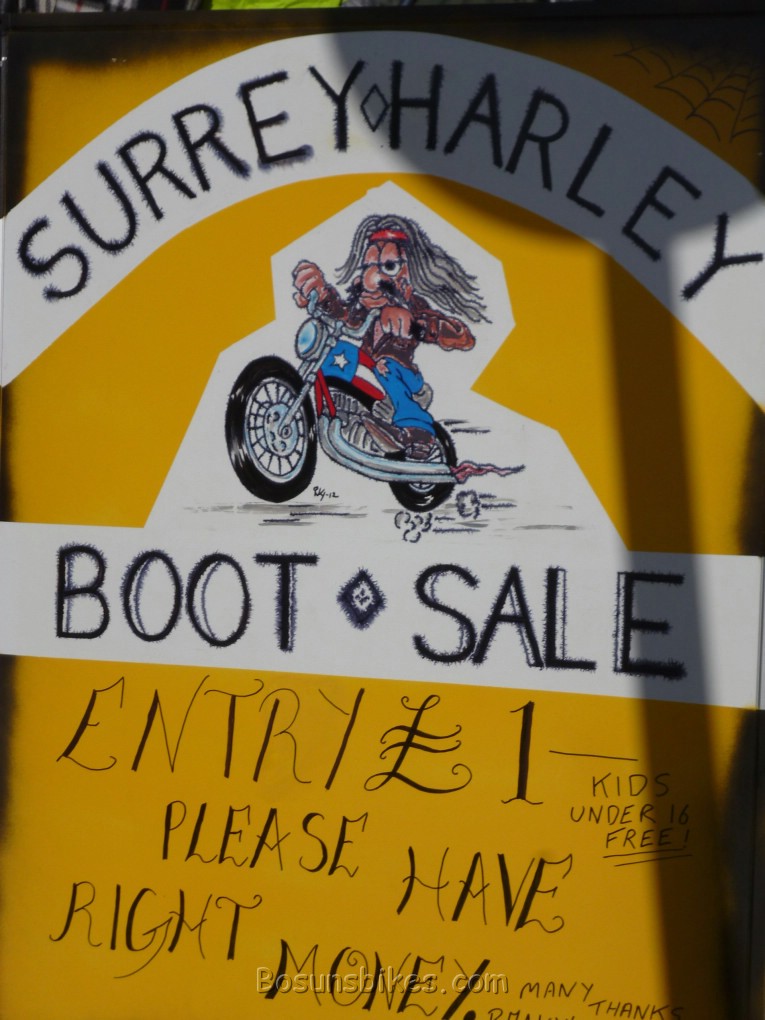 SURREY HARLEY
BOOT SALE
ENTRY £1 —
KIDS
UNDER 16
FREE!
PLEASE HAVE
RIGHT MONEY.
MANY THANKS
Bosunsbikes.com